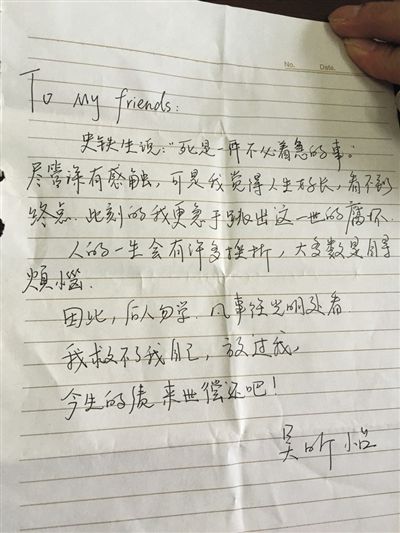 No.
Date.
To My friends:
史铁生说:"死是一件不必着急的事。"
尽管深有感触,可是我觉得人生好长,看不到
终点.此刻的我更急于跳出这一世的腐坏.
人的一生会有许多挫折,大多数是自寻
烦恼.
因此,后人勿学.凡事往光明处看.
我救不了我自己,放过我,
今生的债来世偿还吧!
吴昕怡